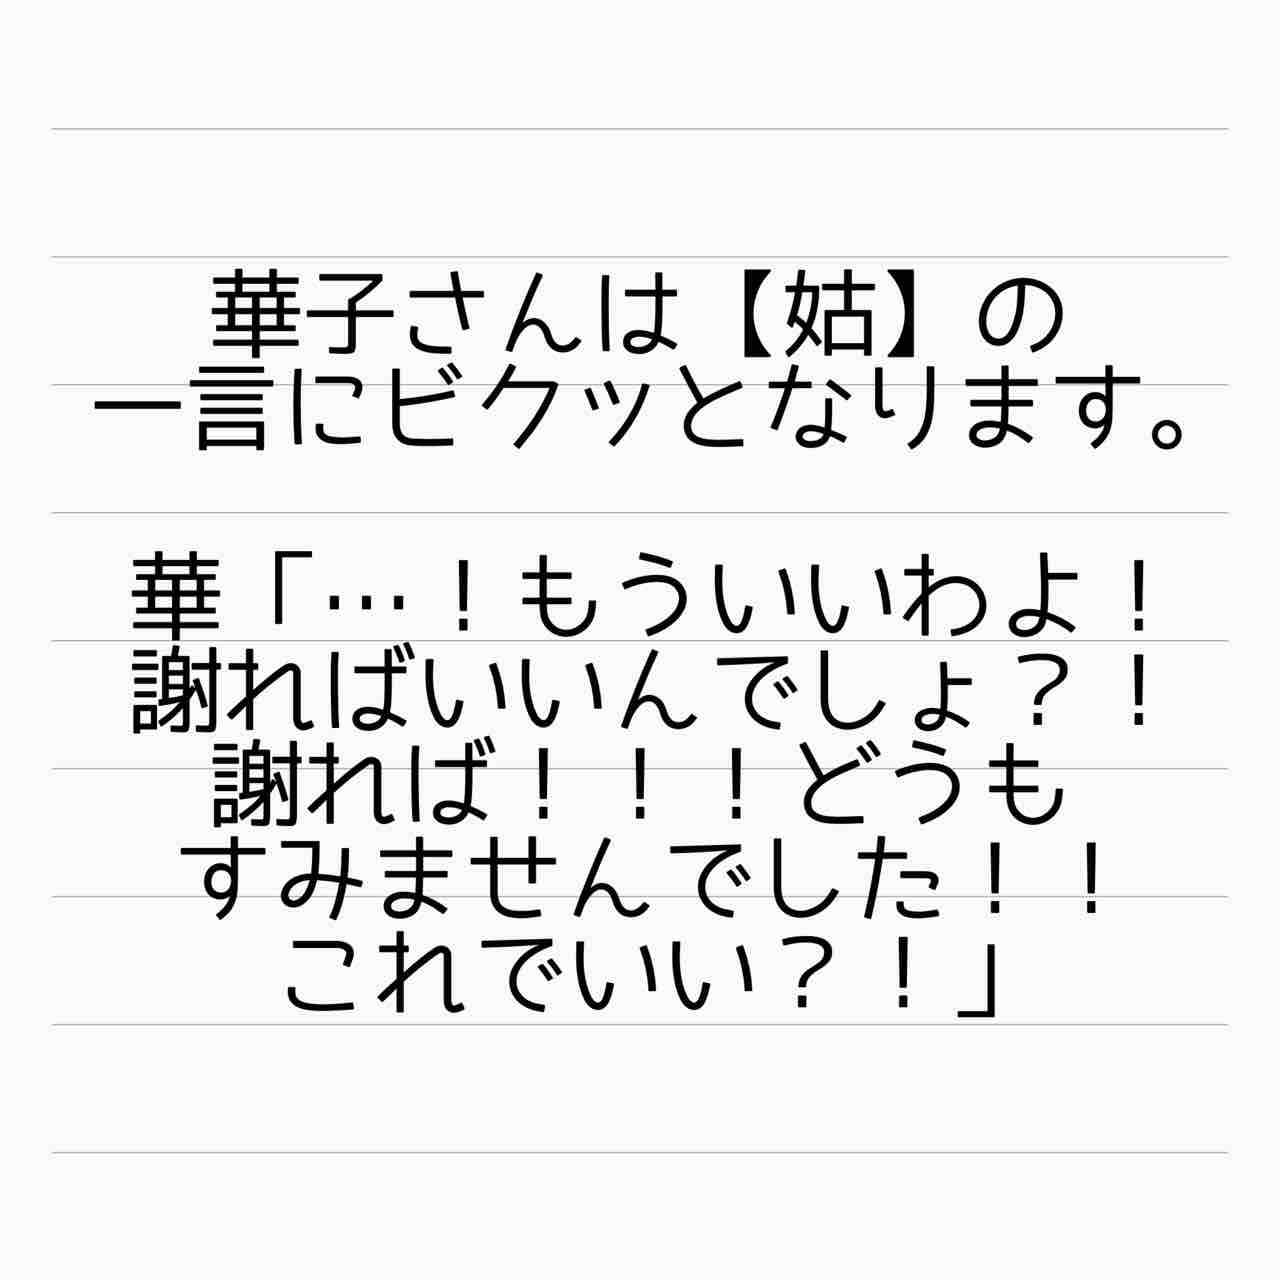 華子さんは【姑】の
一言にビクッとなります。
華「…！もういいわよ！
謝ればいいんでしょ？！
謝れば！！！どうも
すみませんでした！！
これでいい？！」